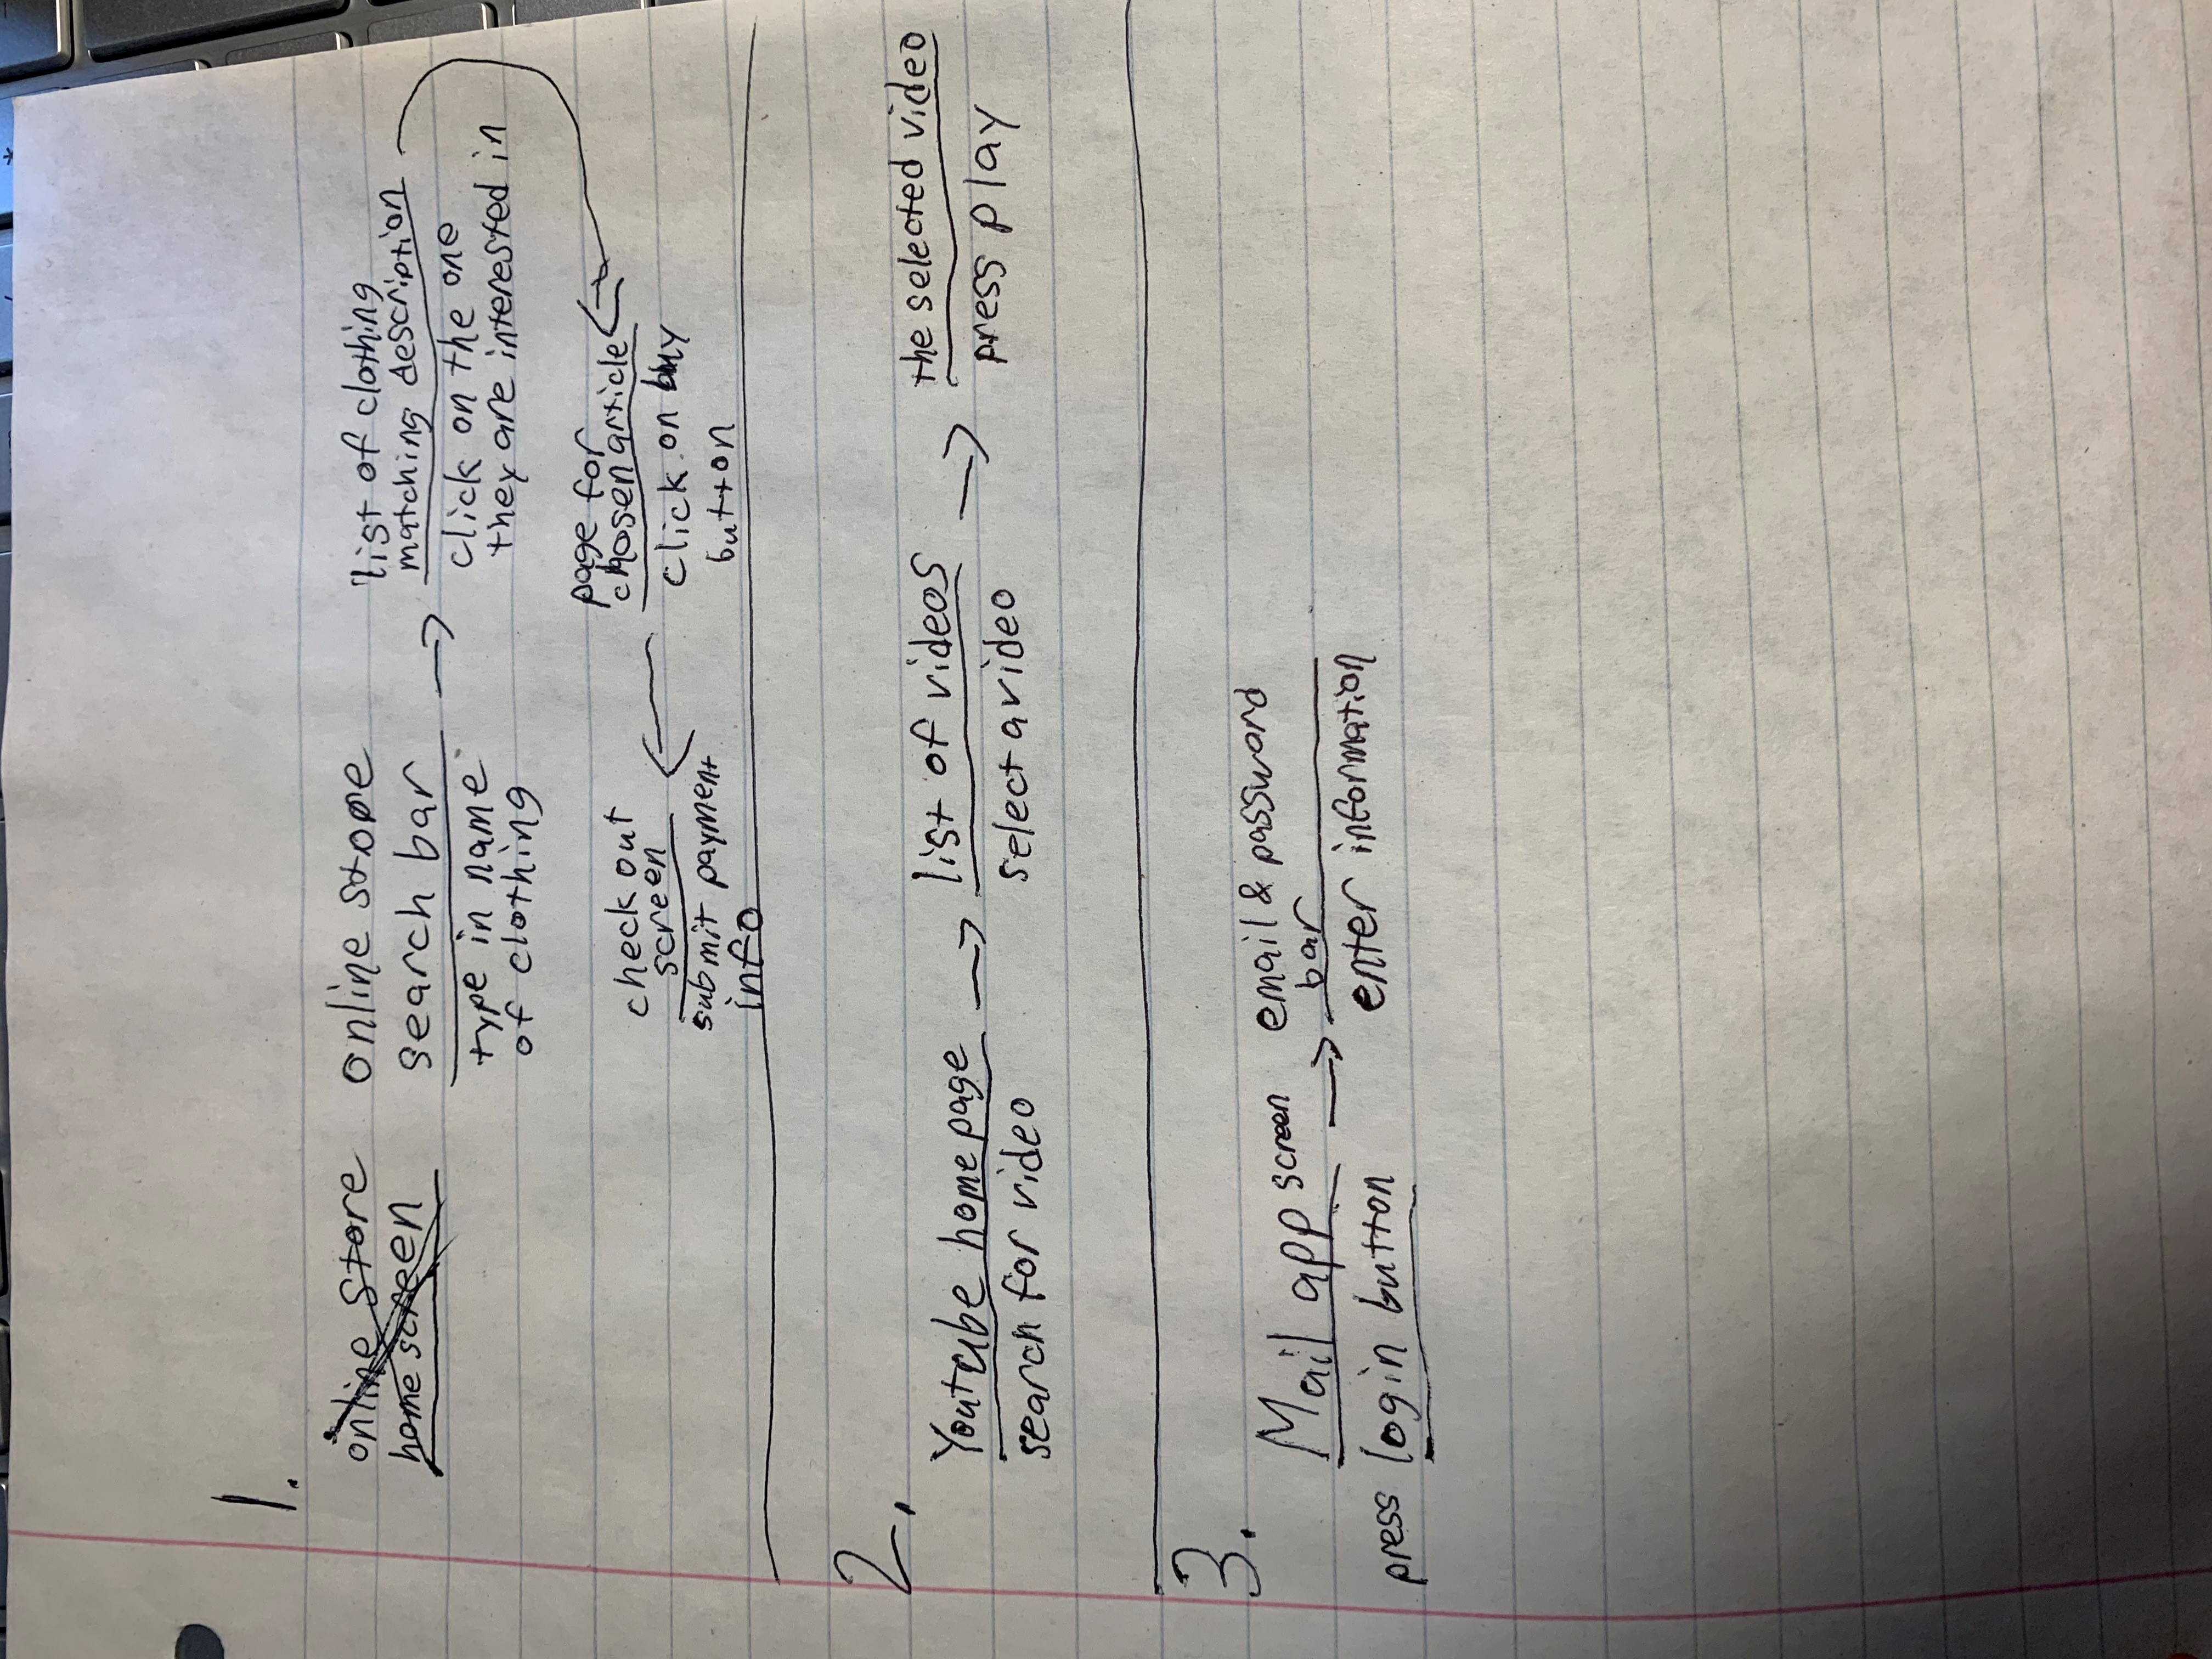 1.
online store
home screen
online store
search bar
type in name
of clothing
→
list of clothing
matching description
click on the one
they are interested in
page for
chosen article
click on buy
button
check out
screen
submit payment
info
2.
Youtube home page
search for video
→
list of videos
select a video
→
the selected video
press play
3.
Mail app screen
press login button
→
email & password
bar
enter information